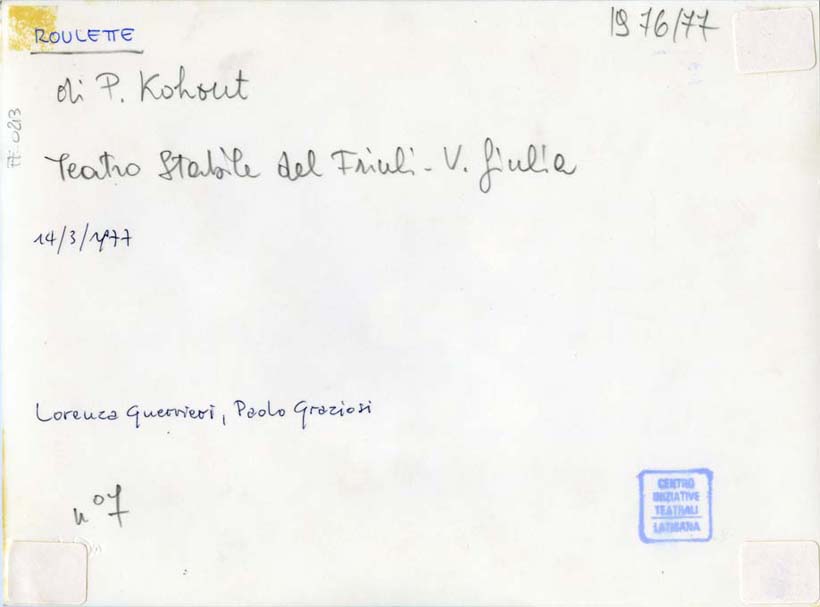 ROULETTE
1976/77
di P. Kohout
FF. 0213
Teatro Stabile del Friuli - V. Giulia
14/3/1977
Lorenza Guerrieri, Paolo Graziosi
n° 7
CENTRO
INIZIATIVE
TEATRALI
LATISANA